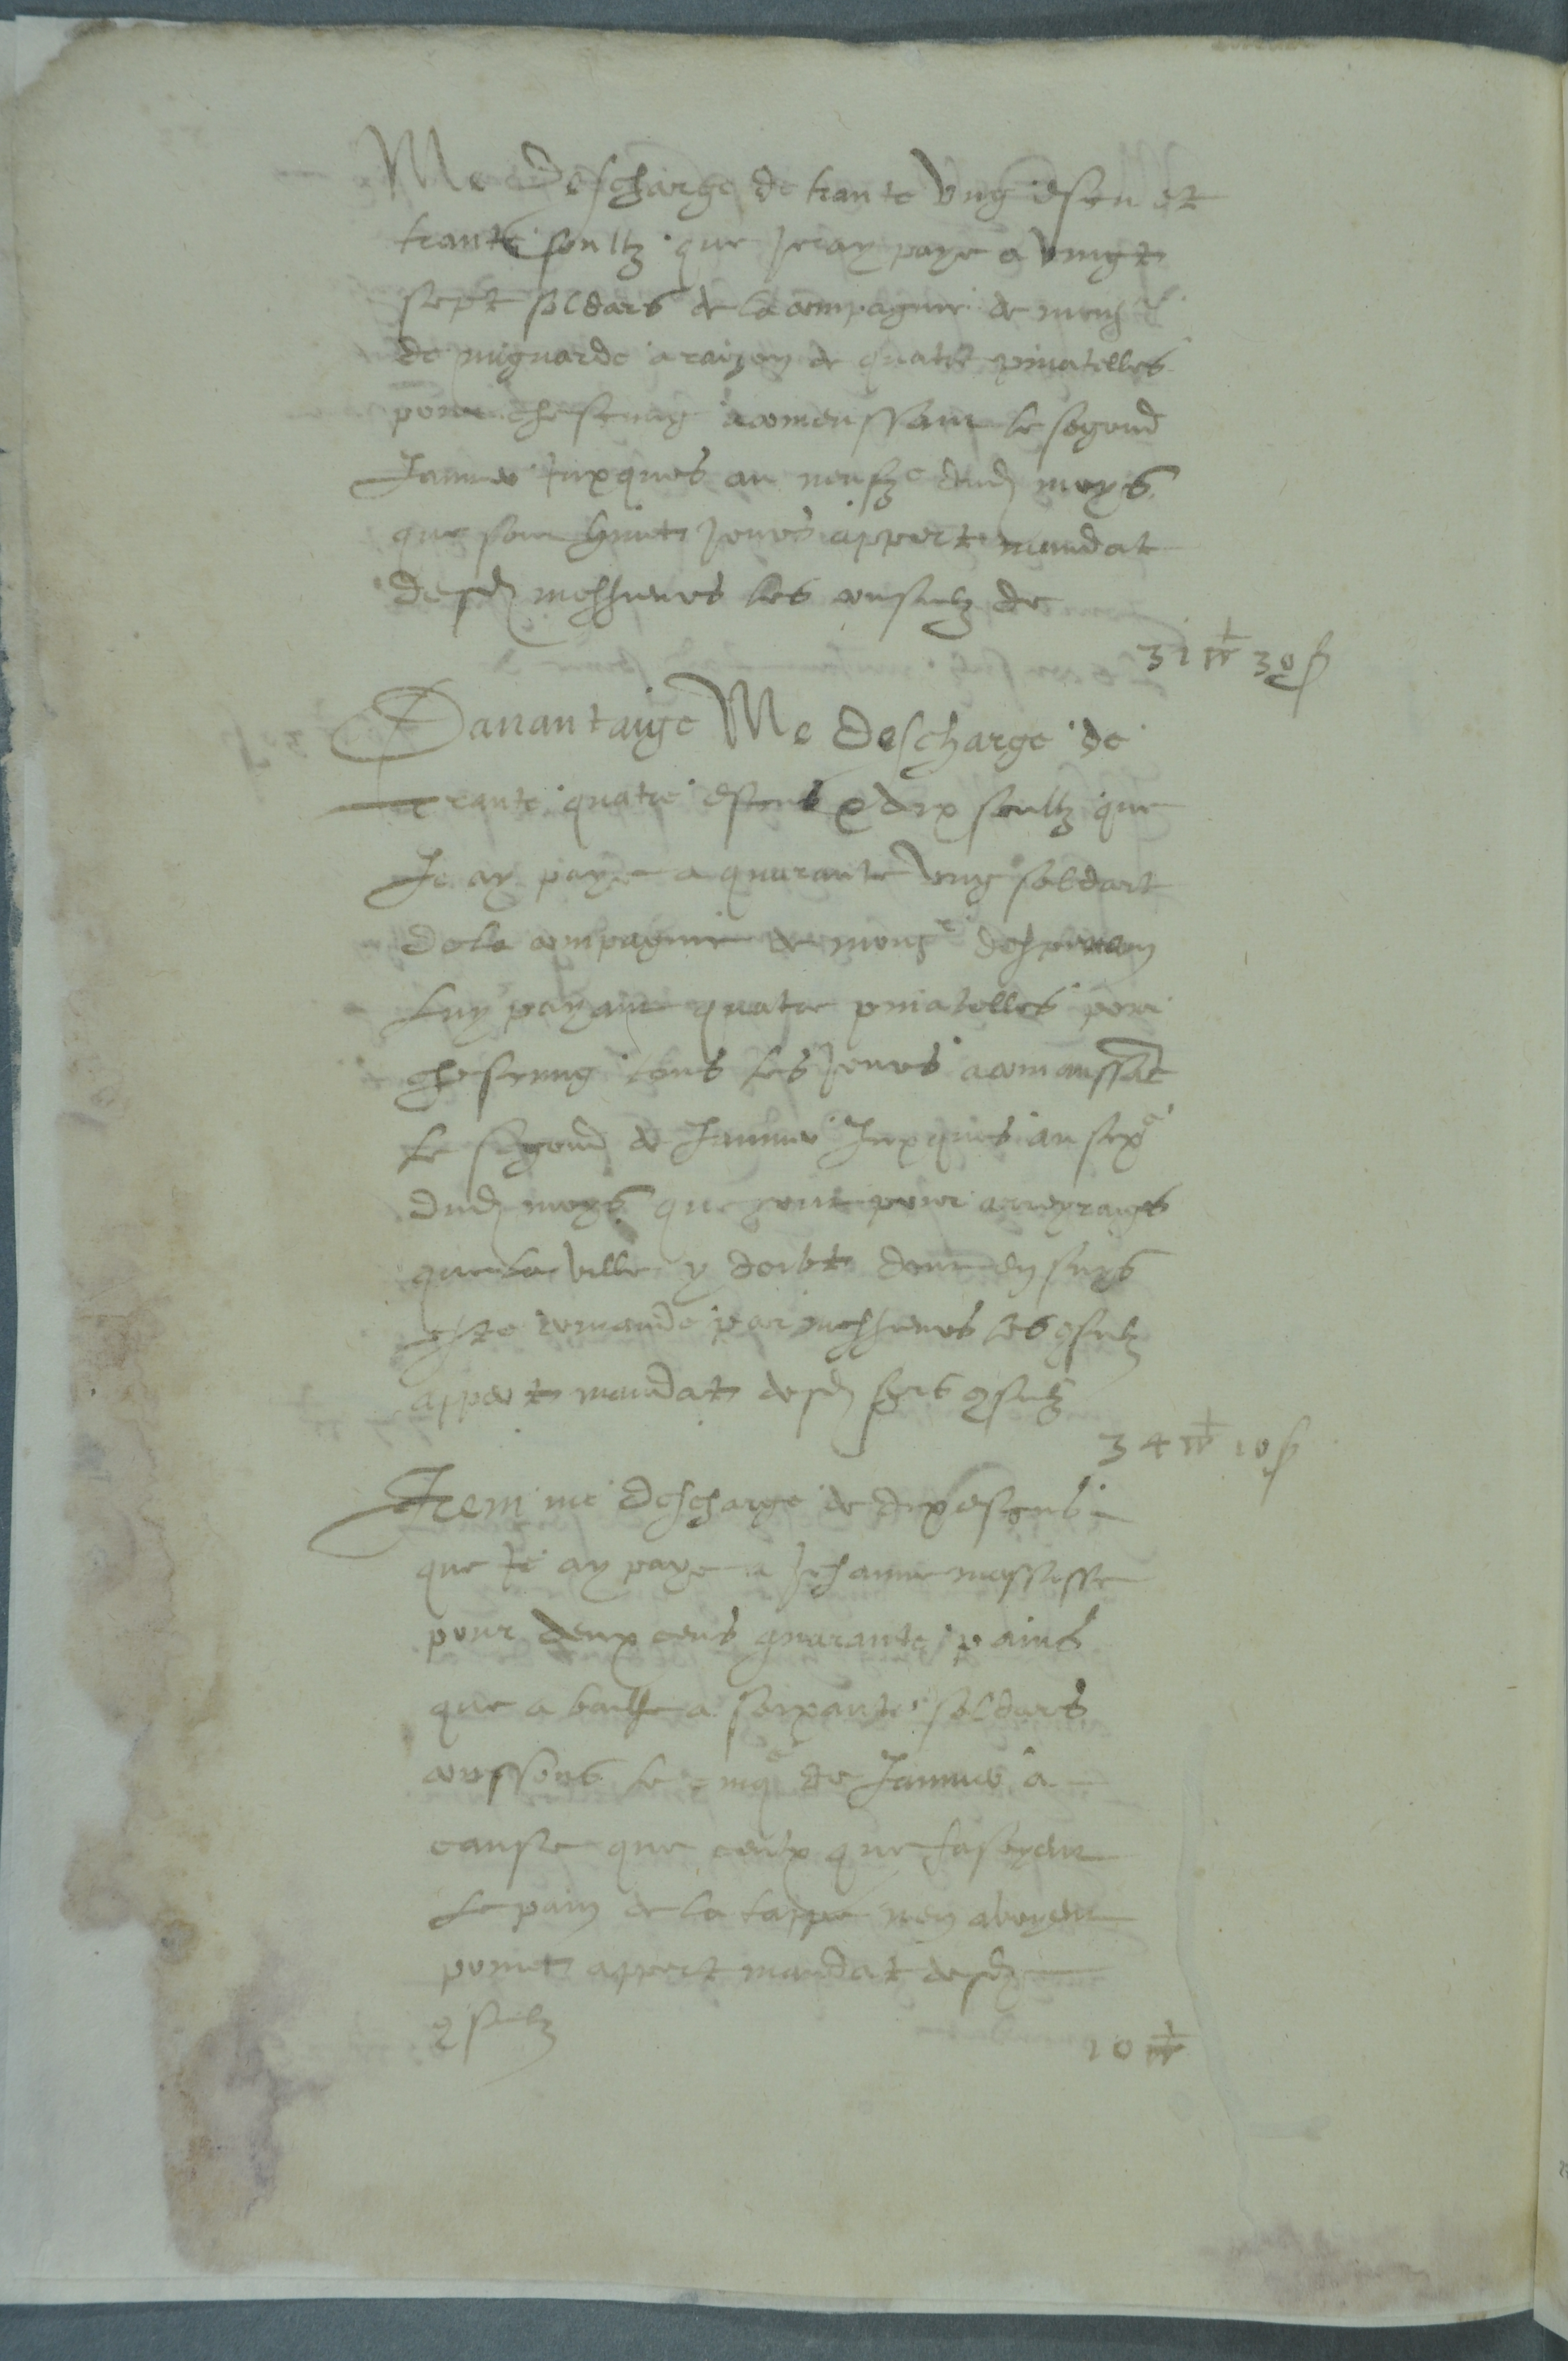 Me descharge de trante ung escu et
trante soultz que je ay paye a vingt
sept soldars de la compagnie de mons.r
de mignarde a raizon de quatre pinatelles
pour chescung acomenssant le segond
Janvier juxques au neufze dud moys
que son huict jours appert mandat
desd messieurs les consulz de
31 30 s
Davantaige Me descharge de
trante quatre escus & dix soultz que
Je ay paye a quarante ung soldart
de la compagnie de mons.r
luy payant quatre pinatelles pour
chescung tous les jours acomanssant
le segond de Janvier Juxques au sixe
dud moys que sont pour arreyraiges
que la ville y doibt dont en suys
este comande par messieurs les consulz
appert mandat desd srs consulz
34 10 s
Item me descharge de dix escus
que je ay paye a Jehanne
pour deux cens quarante pains
que a baille a soixante soldars
le cinqe de Janvier a
cause que ceulx que fasoyent
le pain de la tappe nen avoyent
point appert mandat desd
consulz
10